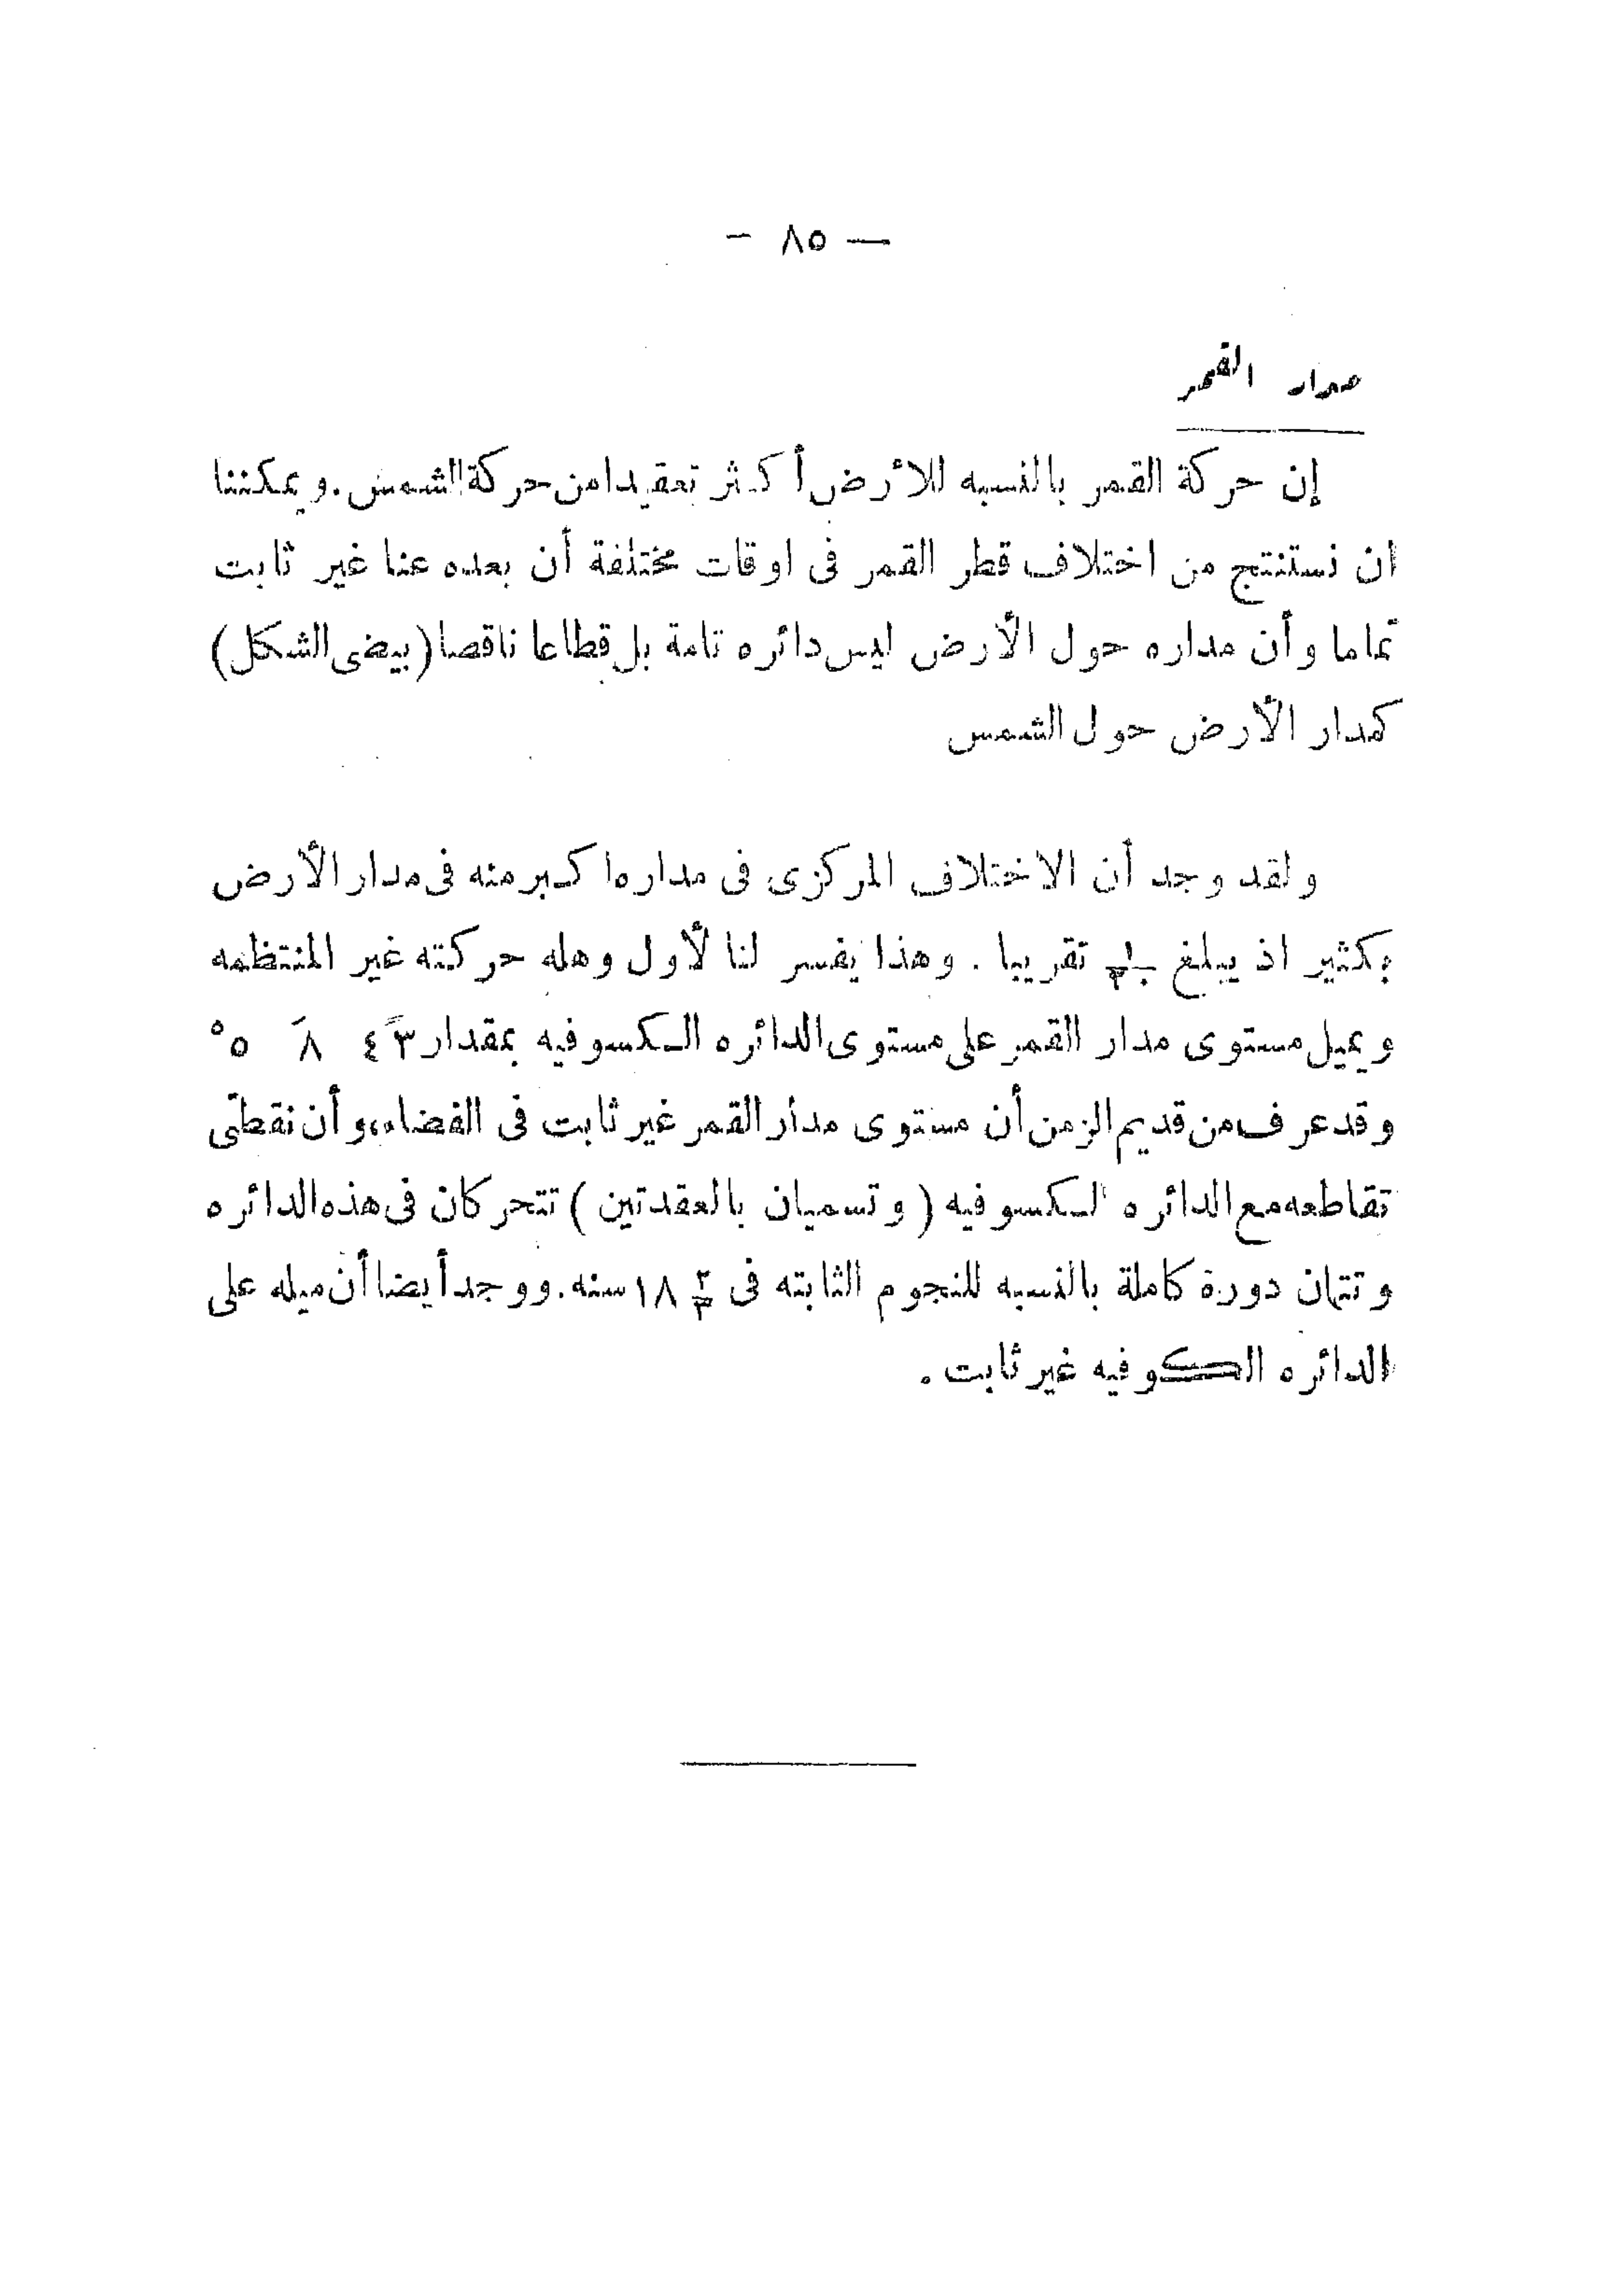 — ٨٥ —
مدار القمر
إن حركة القمر بالنسبه للأرض أكثر تعقيدا من حركة الشمس. ويمكننا
ان نستنتج من اختلاف قطر القمر فى اوقات مختلفة أن بعده عنا غير ثابت
تماما وأن مداره حول الأرض ليس دائره تامة بل قطاعا ناقصا (بيضى الشكل)
كمدار الأرض حول الشمس
ولقد وجد أن الاختلاف المركزى فى مداره اكبر منه فى مدار الأرض
بكثير اذ يبلغ تقريبا . وهذا يفسر لنا لأول وهله حركته غير المنتظمه
ويميل مستوى مدار القمر على مستوى الدائره الكسوفيه بمقدار ٤٣ً ٨َ ٥°
وقد عرف من قديم الزمن أن مستوى مدار القمر غير ثابت فى الفضاء، وأن نقطتى
تقاطعه مع الدائره الكسوفيه ( وتسميان بالعقدتين ) تتحركان فى هذه الدائره
وتتمان دورة كاملة بالنسبه للنجوم الثابته فى ١٨ ٢/٣ سنه. ووجد أيضا أن ميله على
الدائره الككوفيه غير ثابت .